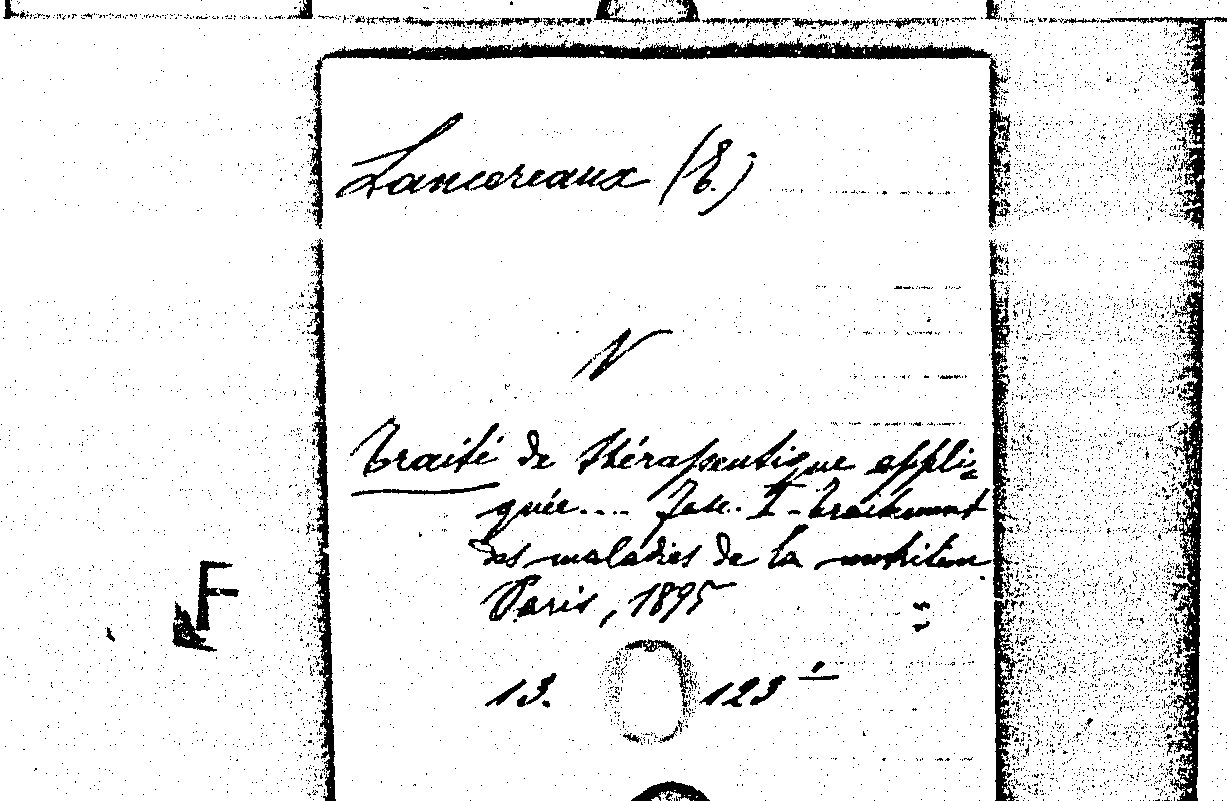 Lancereaux (E.)
N
Traité de thérapeutique appli-
quée.... Fasc. I - Traitement
des maladies de la nutrition.
Paris, 1895
13. 123
F